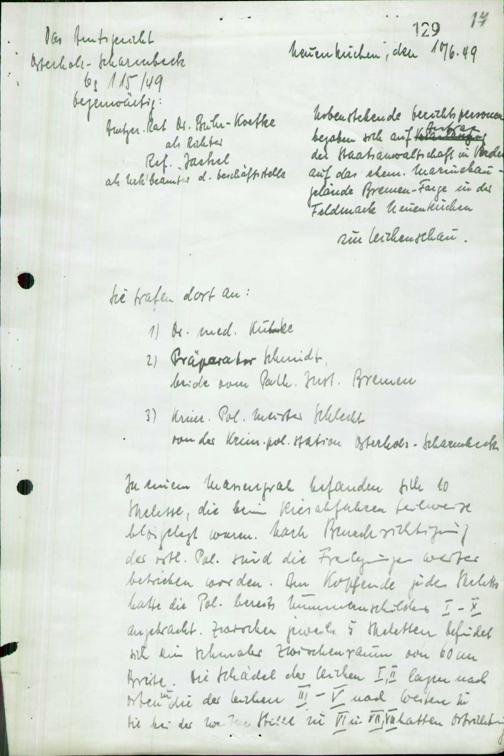 129
17
Das Amtsgericht
Osterholz-Scharmbeck
Gs 115/49
Gegenwärtig:
Amtger. Rat Dr. Bruhn-Koettke
als Richter
Ref. Jaekel
als Urk.beamter d. Geschäftsstelle
Neuenkirchen, den 10/6.49
Nebenstehende Gerichtspersonen
begaben sich auf Antrag
der Staatsanwaltschaft in Verden
auf das ehem. Marinebau-
gelände Bremen-Farge in der
Feldmark Neuenkirchen
zur Leichenschau.
Sie trafen dort an:
1) Dr. med.
2) Präparator Schmidt,
beide vom Path. Inst. Bremen
3) Krim. Pol. Meister Schlecht
von der Krim.pol.station Osterholz-Scharmbeck
In einem Massengrab befanden sich 10
Skelette, die beim Kiesabfahren teilweise
blosgelegt waren. Nach Benachrichtigung
der örtl. Pol. sind die Freilegungen weiter
betrieben worden. Am Kopfende jedes Skeletts
hatte die Pol. bereits Nummernschilder I - X
angebracht. Zwischen jeweils 5 Skeletten befindet
sich ein schmaler Zwischenraum von 60 cm
Breite. Die Schädel der Leichen I, II lagen nach
Osten und die der Leichen III - V nach Westen zu
die bei der VI VII, VIII hatten